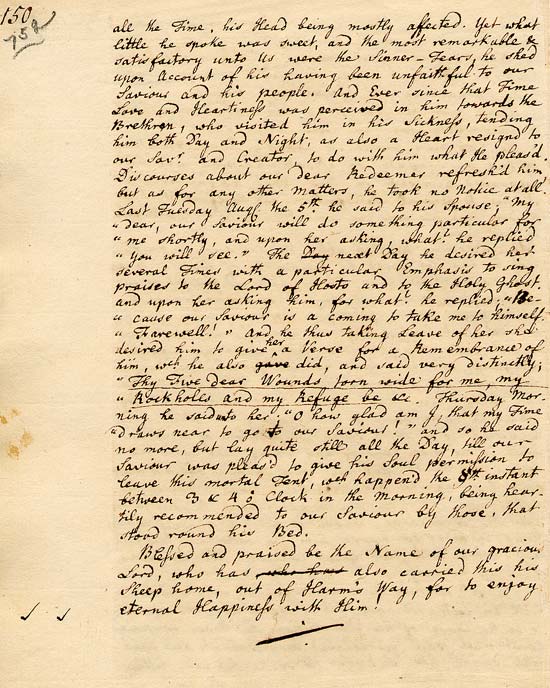 150
752
all the Time, his Head being mostly affected. Yet what
little he spoke was sweet, and the most remarkable &
satisfactory unto Us were the Sinner-Tears, he shed
upon Account of his having been unfaithful to our
Saviour and his people. And Ever since that Time
Love and Heartiness was perceived in him towards the
Brethren, who visited him in his Sickness, tending
him both Day and Night, as also a Heart resigned to
our Savr. and Creator, to do with him what He pleas'd.
Discourses about our Dear Redeemer refresh'd him
but as for any other Matters, he took no Notice at all.
Last Tuesday Augt. the 5th. he said to his Spouse; "My
"Dear, our Saviour will do something particular for
"me shortly, and upon her asking, what? he replied
"You will see." The Day next Day he desired her
several Times with a particular Emphasis to sing
praises to the Lord of Hosts and to the Holy Ghost,
and upon her asking him, for what? he replied; "Be-
"cause our Saviour is a coming to take me to himself.
"Farewell!" And he thus taking Leave of her she
desired him to give her a Verse for a Remembrance of
him, wch. he also gave did, and said very distinctly;
"Thy Five Dear Wounds torn wide for me, my
"Rockholes and my Refuge be &c. Thursday Mor-
ning he said to her: "O how glad am I, that my Time
"draws near to go to our Saviour!" and so he said
no more, but lay quite still all the Day, till our
Saviour was pleas'd to give his Soul permission to
leave this mortal Tent, wch happen'd the 8th instant
between 3 & 4 o' Clock in the Morning, being hear-
tily recommended to our Saviour by those, that
stood round his Bed.
Blessed and praised be the Name of our gracious
Lord, who has who has also carried this his
Sheep home, out of Harm's Way, for to enjoy
eternal Happiness with Him!